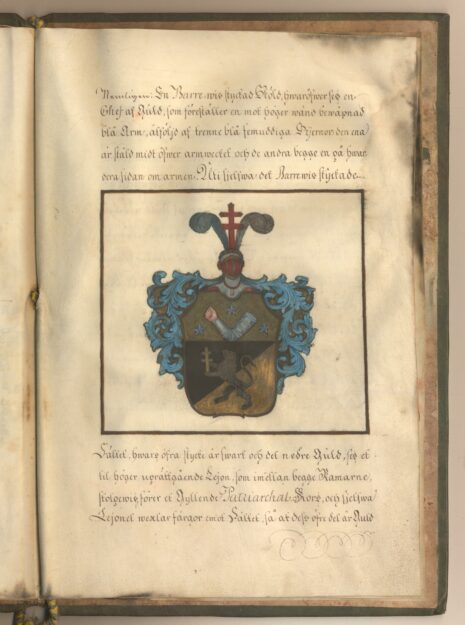 Nemligen: En Barre-wis styckad Sköld, hwaröfwer ses en
Chef af Guld, som föreställer en mot höger wänd bewäpnad
blå Arm, altföljd af trenne blå femuddiga Stjernor, den ena
är stäld midt öfwer armwecket och de andra begge en på hwar
dera sidan om armen. Uti sjelfwa det Barrewis styckade
Fältet, hwars öfra stycke är swart och det nedre Guld, ses et
til höger uprättgående Lejon, som imellan begge Ramarne,
stolpewis, förer et gyllende Patriarchal-Kors, och sjelfwa
Lejonet wexlar färgor emot Fältet, så at dess öfre del är Guld